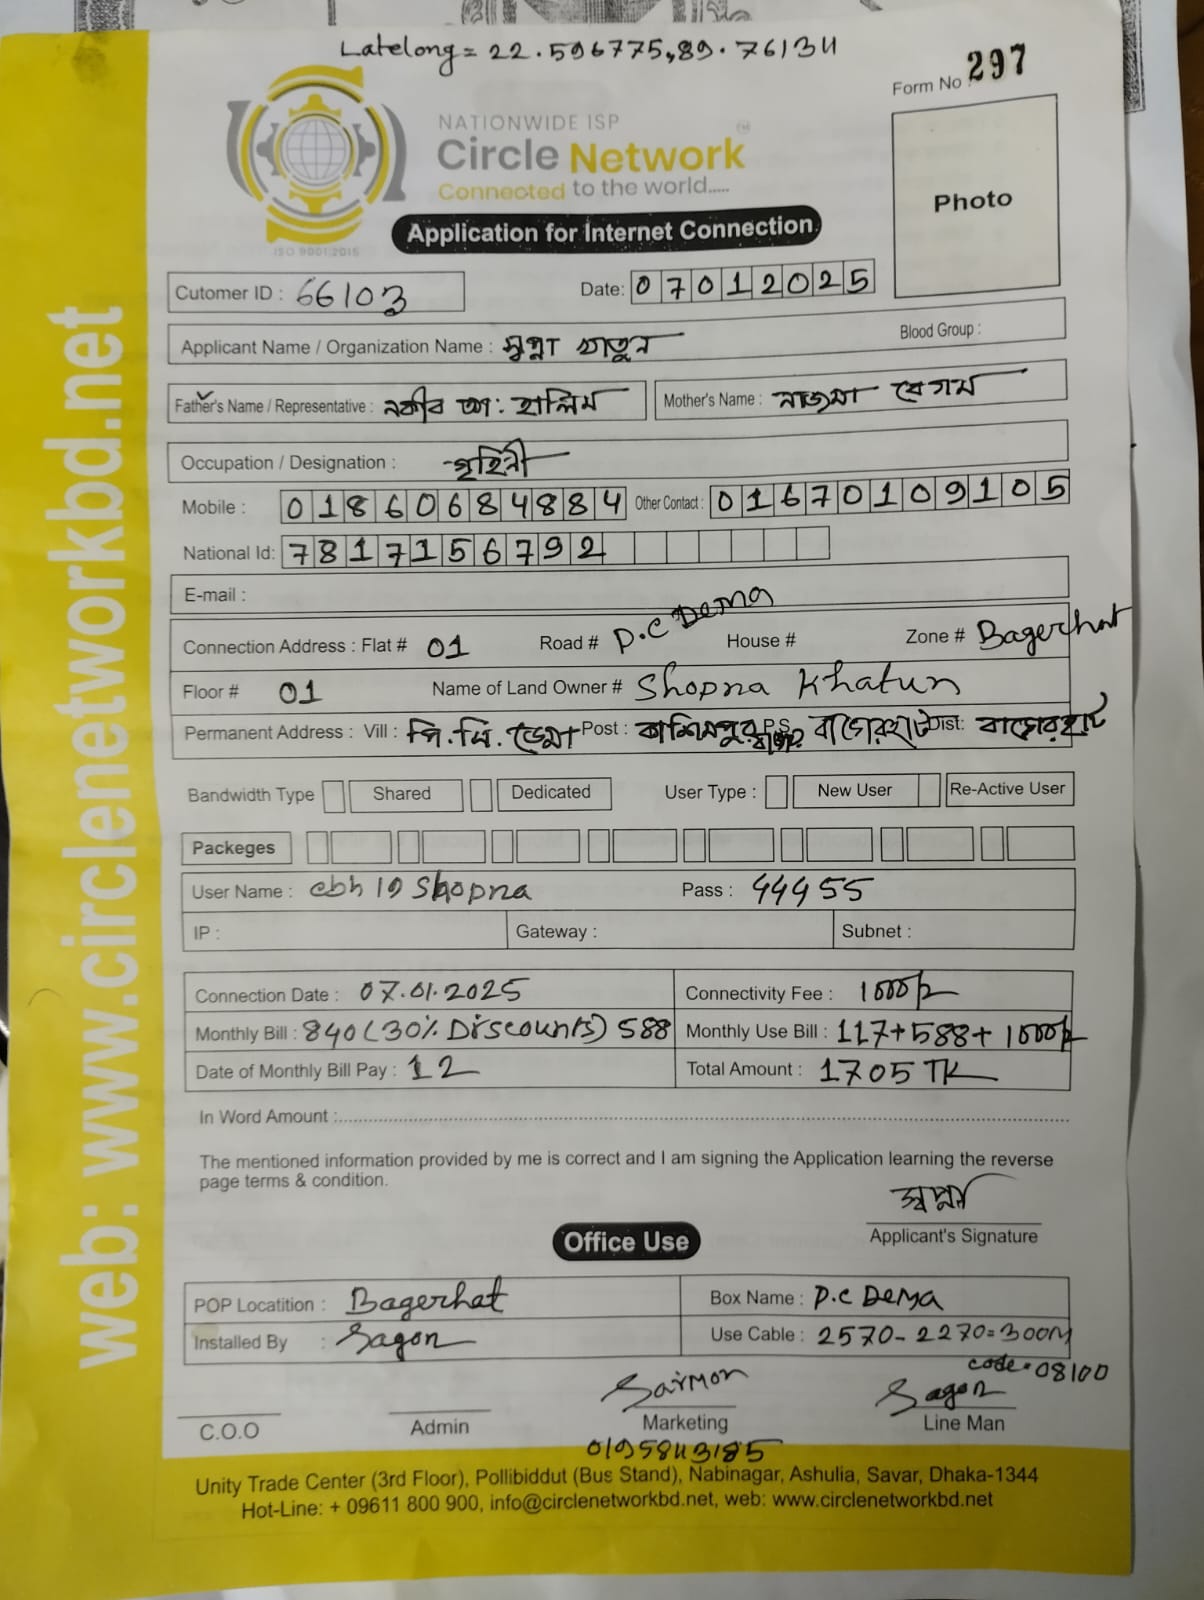 Latelong = 22.596775,89.76134
Form No 297
NATIONWIDE ISP
Circle Network
Connected to the world.....
ISO 9001:2015
Photo
Application for Internet Connection
Cutomer ID : 66103
Date: 07012025
Applicant Name / Organization Name : স্বপ্না খাতুন
Blood Group :
Father's Name / Representative : নকীব আ: হালিম
Mother's Name : নাজমা বেগম
Occupation / Designation : গৃহিনী
Mobile : 01860684884 Other Contact : 01670109105
National Id: 7817156792
E-mail :
Connection Address : Flat # 01 Road # P.C Dema House # Zone # Bagerhat
Floor # 01 Name of Land Owner # Shopna Khatun
Permanent Address : Vill : পি.সি. ডেমা Post : কাশিমপুর P.S বাগেরহাট Dist: বাগেরহাট
Bandwidth Type Shared Dedicated User Type : New User Re-Active User
Packeges
User Name : cbh 19 Shopna Pass : 44455
IP : Gateway : Subnet :
Connection Date : 07.01.2025 Connectivity Fee : 1000/-
Monthly Bill : 840 (30% Discounts) 588 Monthly Use Bill : 117+588+ 1000/-
Date of Monthly Bill Pay : 12 Total Amount : 1705 TK
In Word Amount :
The mentioned information provided by me is correct and I am signing the Application learning the reverse
page terms & condition.
স্বপ্না
Applicant's Signature
Office Use
POP Locatition : Bagerhat Box Name : P.C Dema
Installed By : Sagor Use Cable : 2570-2270=300M
code=08100
Sairmon Sagor
C.O.O Admin Marketing Line Man
Unity Trade Center (3rd Floor), Pollibiddut (Bus Stand), Nabinagar, Ashulia, Savar, Dhaka-1344
Hot-Line: + 09611 800 900, info@circlenetworkbd.net, web: www.circlenetworkbd.net
web: www.circlenetworkbd.net